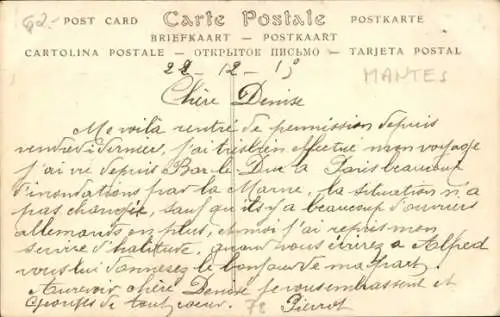 62.-
POST CARD Carte Postale POSTKARTE
BRIEFKAART — POSTKAART
CARTOLINA POSTALE — ОТКРЫТОЕ ПИСЬМО — TARJETA POSTAL
22-12-15
MANTES
Chère Denise
Me voilà rentré de permission depuis
vendredi dernier, j'ai très bien effectué mon voyage
j'ai vu depuis Bar le Duc à Paris beaucoup
d'inondations par la Marne, la situation n'a
pas changée, sauf qu'il y a beaucoup d'ouvriers
allemands en plus, et moi j'ai repris mon
service d'habitude, quand vous écrirez à Alfred
vous lui donnerez le bonjour de ma part.
Au revoir chère Denise je vous embrassent et
de tout coeur. Pierrot
78